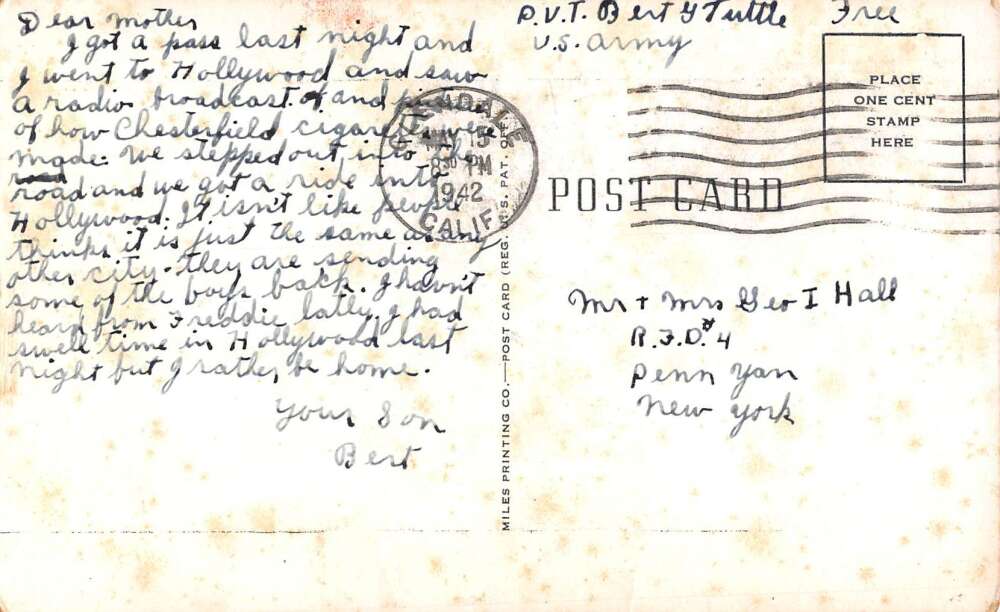 Dear Mother
I got a pass last night and
I went to Hollywood and saw
a radio broadcast. of and
of how Chesterfield cigarettes were
made. We stepped out into the
road and we got a ride into
Hollywood. It isn't like people
thinks it is just the same as any
other city. They are sending
some of the boys back. I havn't
hear from Freddie latly. I had
swell time in Hollywood last
night but I rather be home.
Your Son
Bert
P.V.T. Bert G Tuttle
U.S. Army
Free
PLACE
ONE CENT
STAMP
HERE
GLENDALE
15
8 30 PM
1942
CALIF
POST CARD
Mr + Mrs Geo I Hall
R.F.D. #4
Penn Yan
New York
MILES PRINTING CO.—POST CARD (REG. U.S. PAT. OFF.